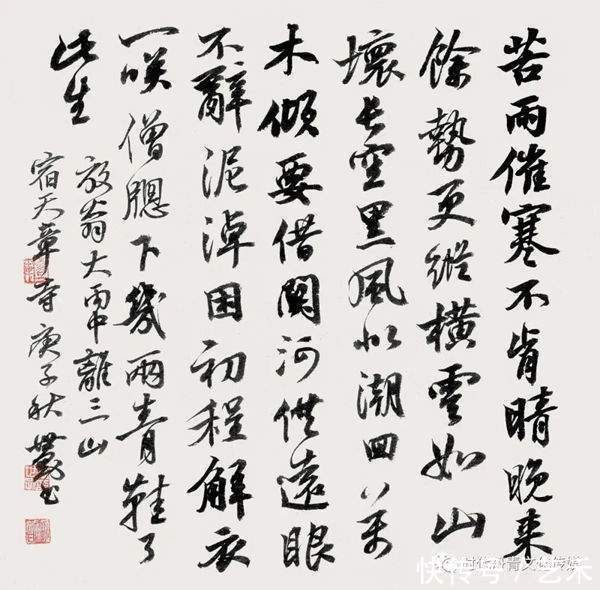 苦雨催寒不肯晴晚来
餘勢更縱横雲如山
壞長空黑風似潮回万
木傾要借關河供遠眼
不辭泥淖困初程解衣
一咲僧牕下幾兩青鞋了
此生
放翁大雨中離三山
宿天章寺庚子秋書
快传号/艺禾